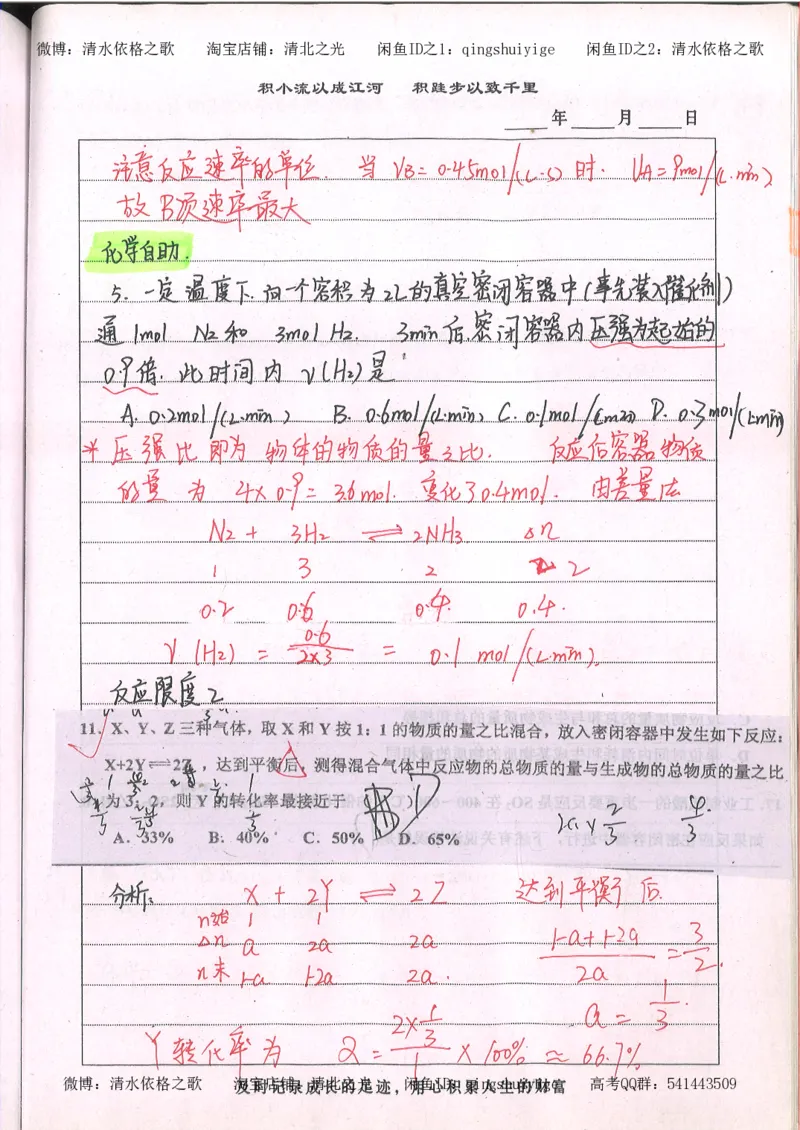 微博：清水依格之歌 淘宝店铺：清北之光 闲鱼ID之1：qingshuiyige 闲鱼ID之2：清水依格之歌
积小流以成江河 积跬步以致千里
年 月 日
注意反应速率的单位. 当 VB=0.45mol/(L·s)时. VA=9mol/(L.min)
故B项速率最大
化学自助.
5. 一定温度下.向一个容积为2L的真空密闭容器中(事先装入催化剂)
通1mol N2和 3mol H2. 3min后.密闭容器内压强为起始的
0.9倍. 此时间内 v(H2)是
A. 0.2mol/(L.min) B. 0.6mol/(L.min) C. 0.1mol/(L.min) D. 0.3mol/(L.min)
* 压强比即为物体的物质的量之比. 反应后容器物质
的量为 4×0.9=3.6mol. 变化了0.4mol. 由差量法
N2 + 3H2 ⇌ 2NH3 Δn
1 3 2 2
0.2 0.6 0.4. 0.4.
v(H2) = 0.6/2×3 = 0.1 mol/(L.min).
反应限度2
11. X、Y、Z三种气体，取X和Y按1：1的物质的量之比混合，放入密闭容器中发生如下反应：
X+2Y⇌2Z，达到平衡后，测得混合气体中反应物的总物质的量与生成物的总物质的量之比
为3：2，则Y的转化率最接近于
A．33% B．40% C．50% D．65%
分析: X + 2Y ⇌ 2Z 达到平衡后.
n始 1 1
Δn a 2a 2a
n末 1-a 1-2a 2a.
1-a+1-2a/2a = 3/2.
a = 1/3.
Y转化率为 α = 2×1/3/1 × 100% ≈ 66.7%
微博：清水依格之歌 淘宝店铺：清北之光 闲鱼ID：qingshuiyige 高考QQ群：541443509
及时记录成长的足迹，用心积累人生的财富